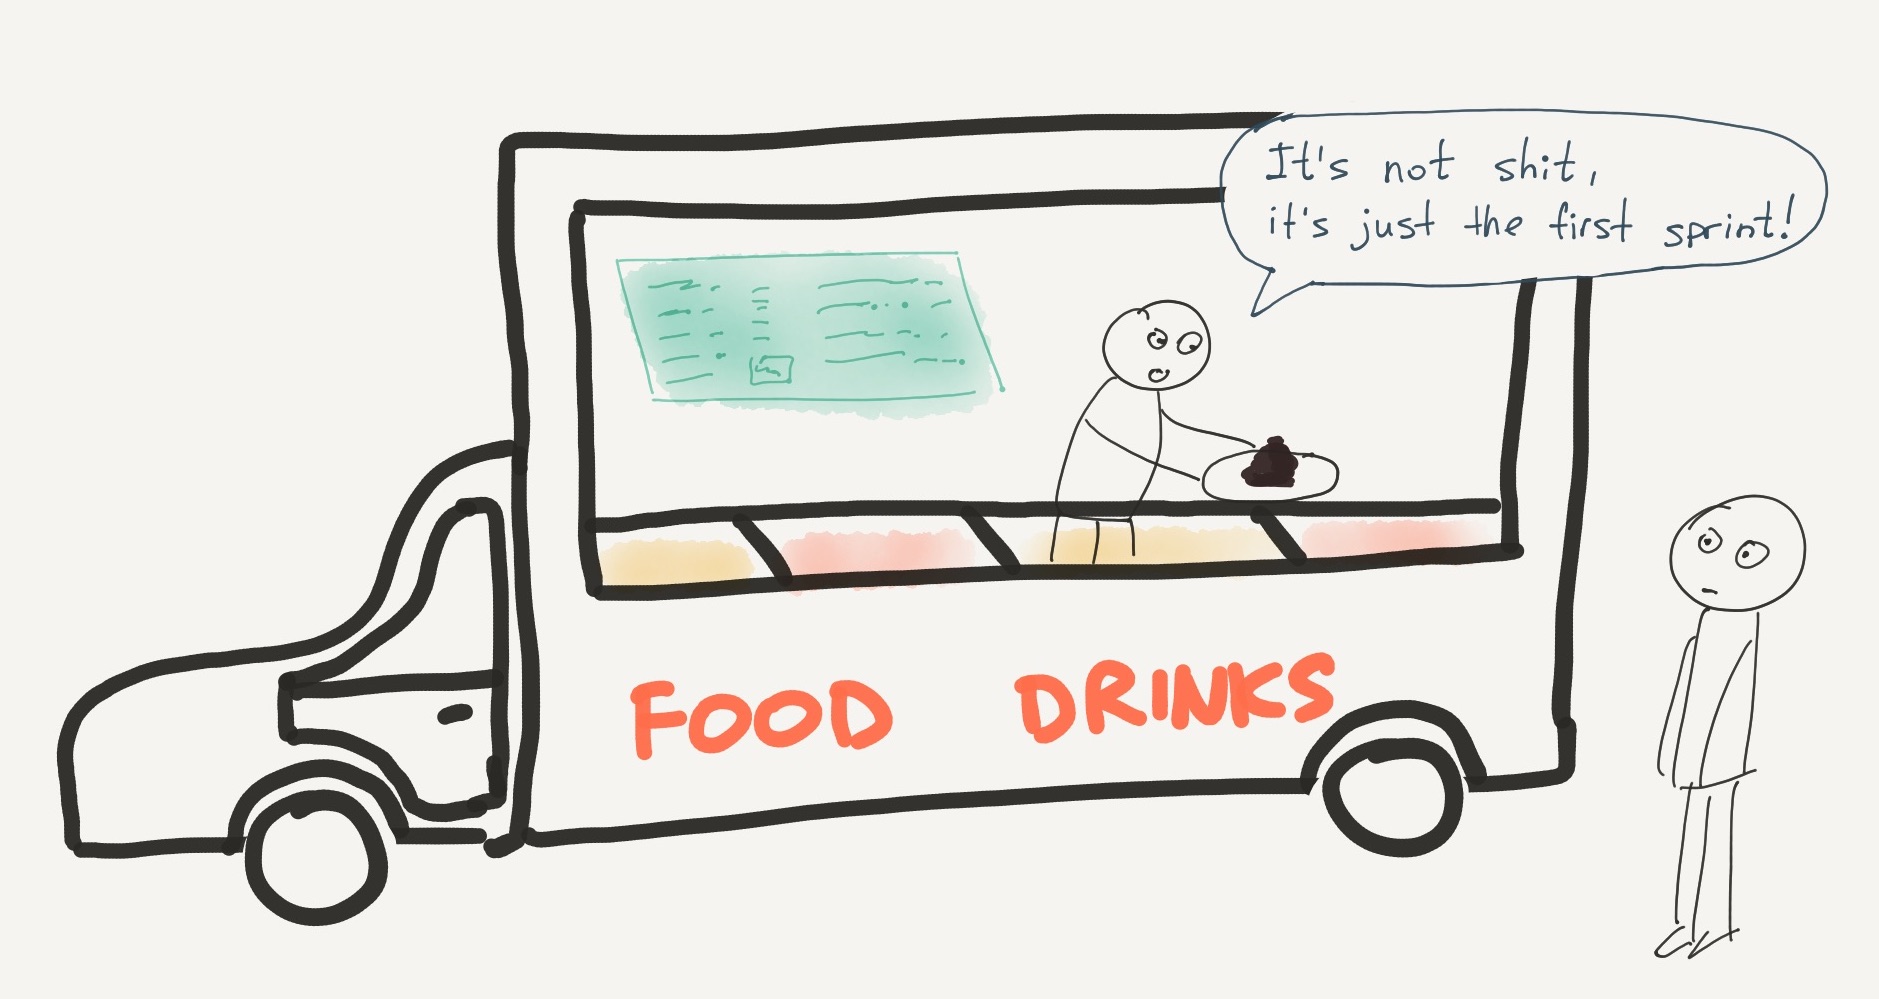 It's not shit,
it's just the first sprint!
FOOD DRINKS